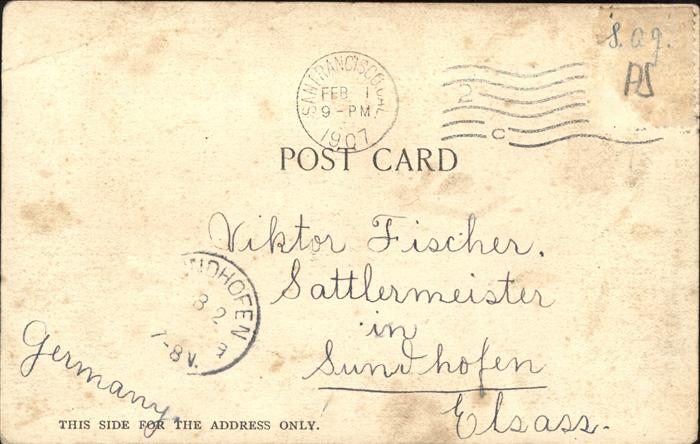 S.ag.
AS
SAN FRANCISCO, CAL.
FEB 1
9-PM
1907
2
C
POST CARD
Viktor Fischer.
Sattlermeister
in
Sundhofen
Elsass.
NDHOFEN
8 2
7-8V.
Germany.
THIS SIDE FOR THE ADDRESS ONLY.